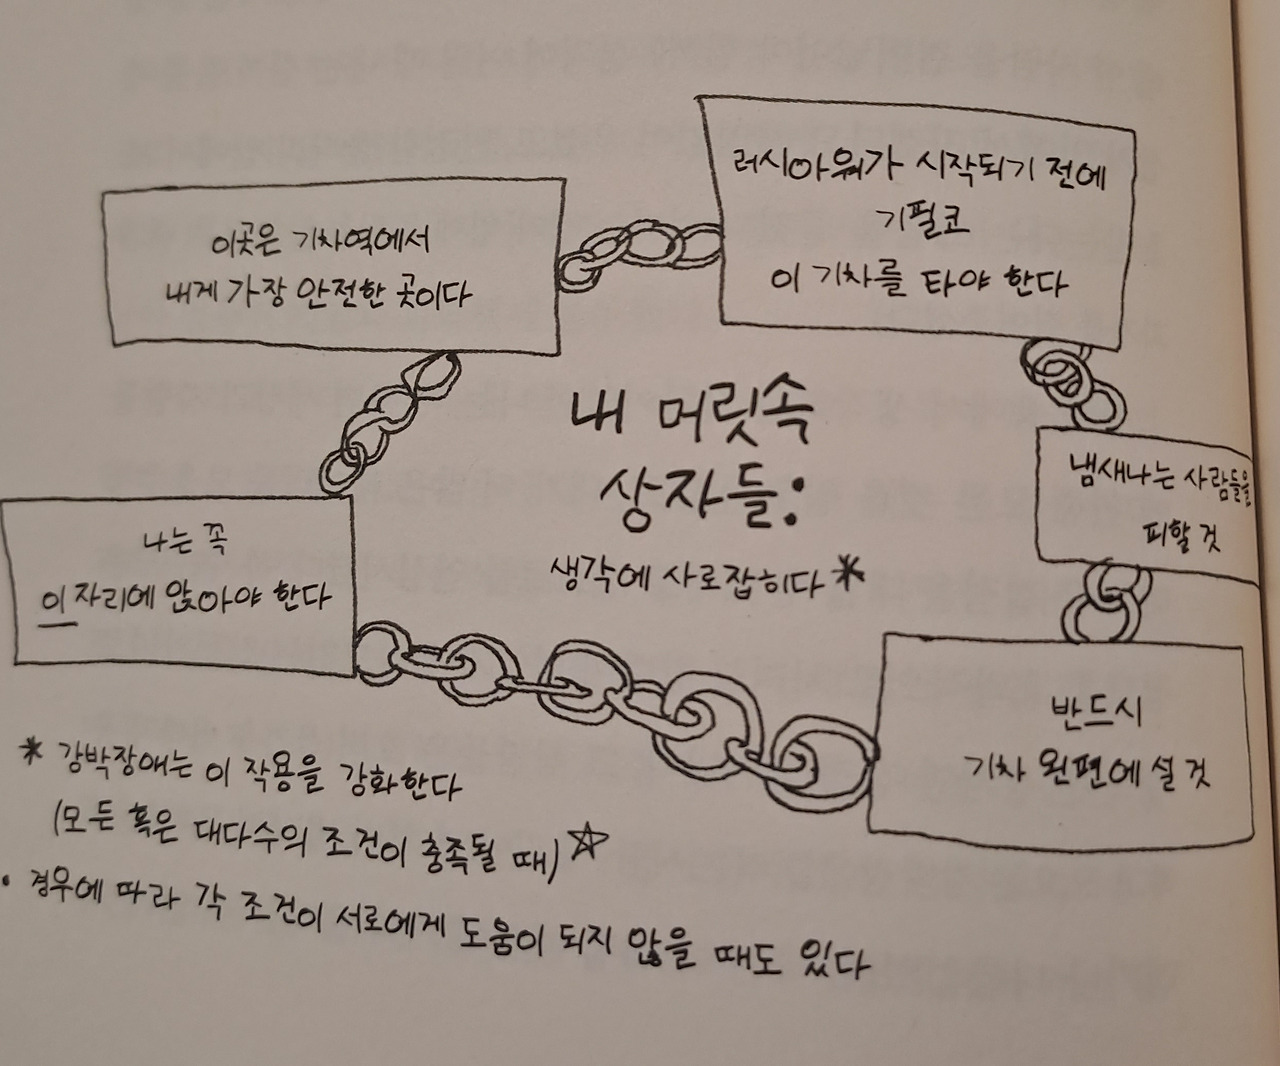 러시아워가 시작되기 전에
기필코
이 기차를 타야 한다
이곳은 기차역에서
내게 가장 안전한 곳이다
내 머릿속
상자들:
생각에 사로잡히다*
냄새나는 사람들을
피할 것
나는 꼭
이 자리에 앉아야 한다
반드시
기차 왼편에 설 것
* 강박장애는 이 작용을 강화한다
(모든 혹은 대다수의 조건이 충족될 때)☆
• 경우에 따라 각 조건이 서로에게 도움이 되지 않을 때도 있다